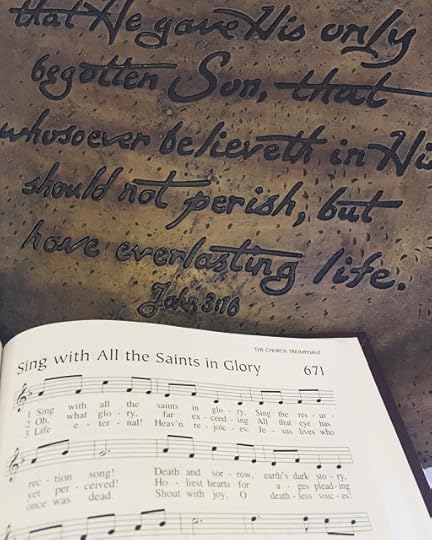 that He gave His only
begotten Son, that
whosoever believeth in His
should not perish, but
have everlasting life.
John 3:16
THE CHURCH TRIUMPHANT
Sing with All the Saints in Glory 671
1 Sing with all the saints in glo - ry, Sing the res - ur -
2 Oh, what glo - ry, far ex - ceed - ing All that eye has
3 Life e - ter - nal! Heav'n re - joic - es: Je - sus lives who
rec - tion song! Death and sor - row, earth's dark sto - ry,
yet per - ceived! Ho - liest hearts for a - ges plead - ing
once was dead. Shout with joy, O death - less voic - es!